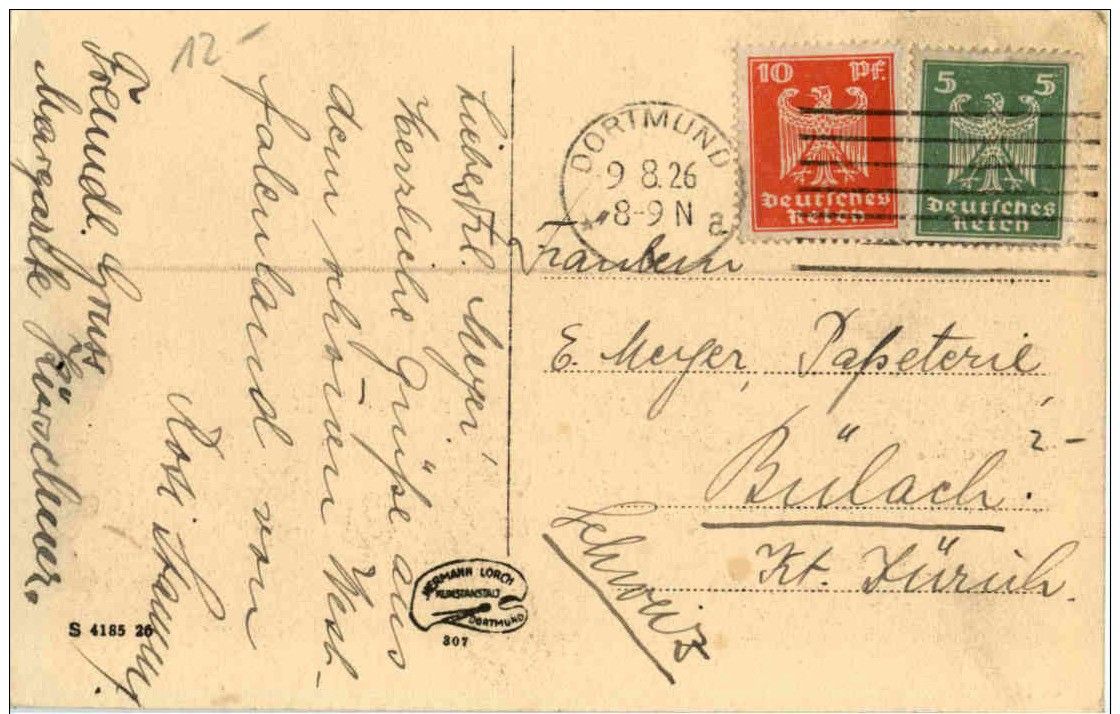 12-
Liebes Frl. Meyer,
Herzliche Grüße aus
dem schönen West-
falenland von
Freundl. Gruss
DORTMUND
9 8.26
8-9 N
a
10 Pf.
Deutsches
Reich
5 5
Deutsches
Reich
Fräulein
E. Meyer, Papeterie
Bülach.
Kt. Zürich.
Schweiz
HERMANN LORCH
KUNSTANSTALT
DORTMUND
307
S 4185 26